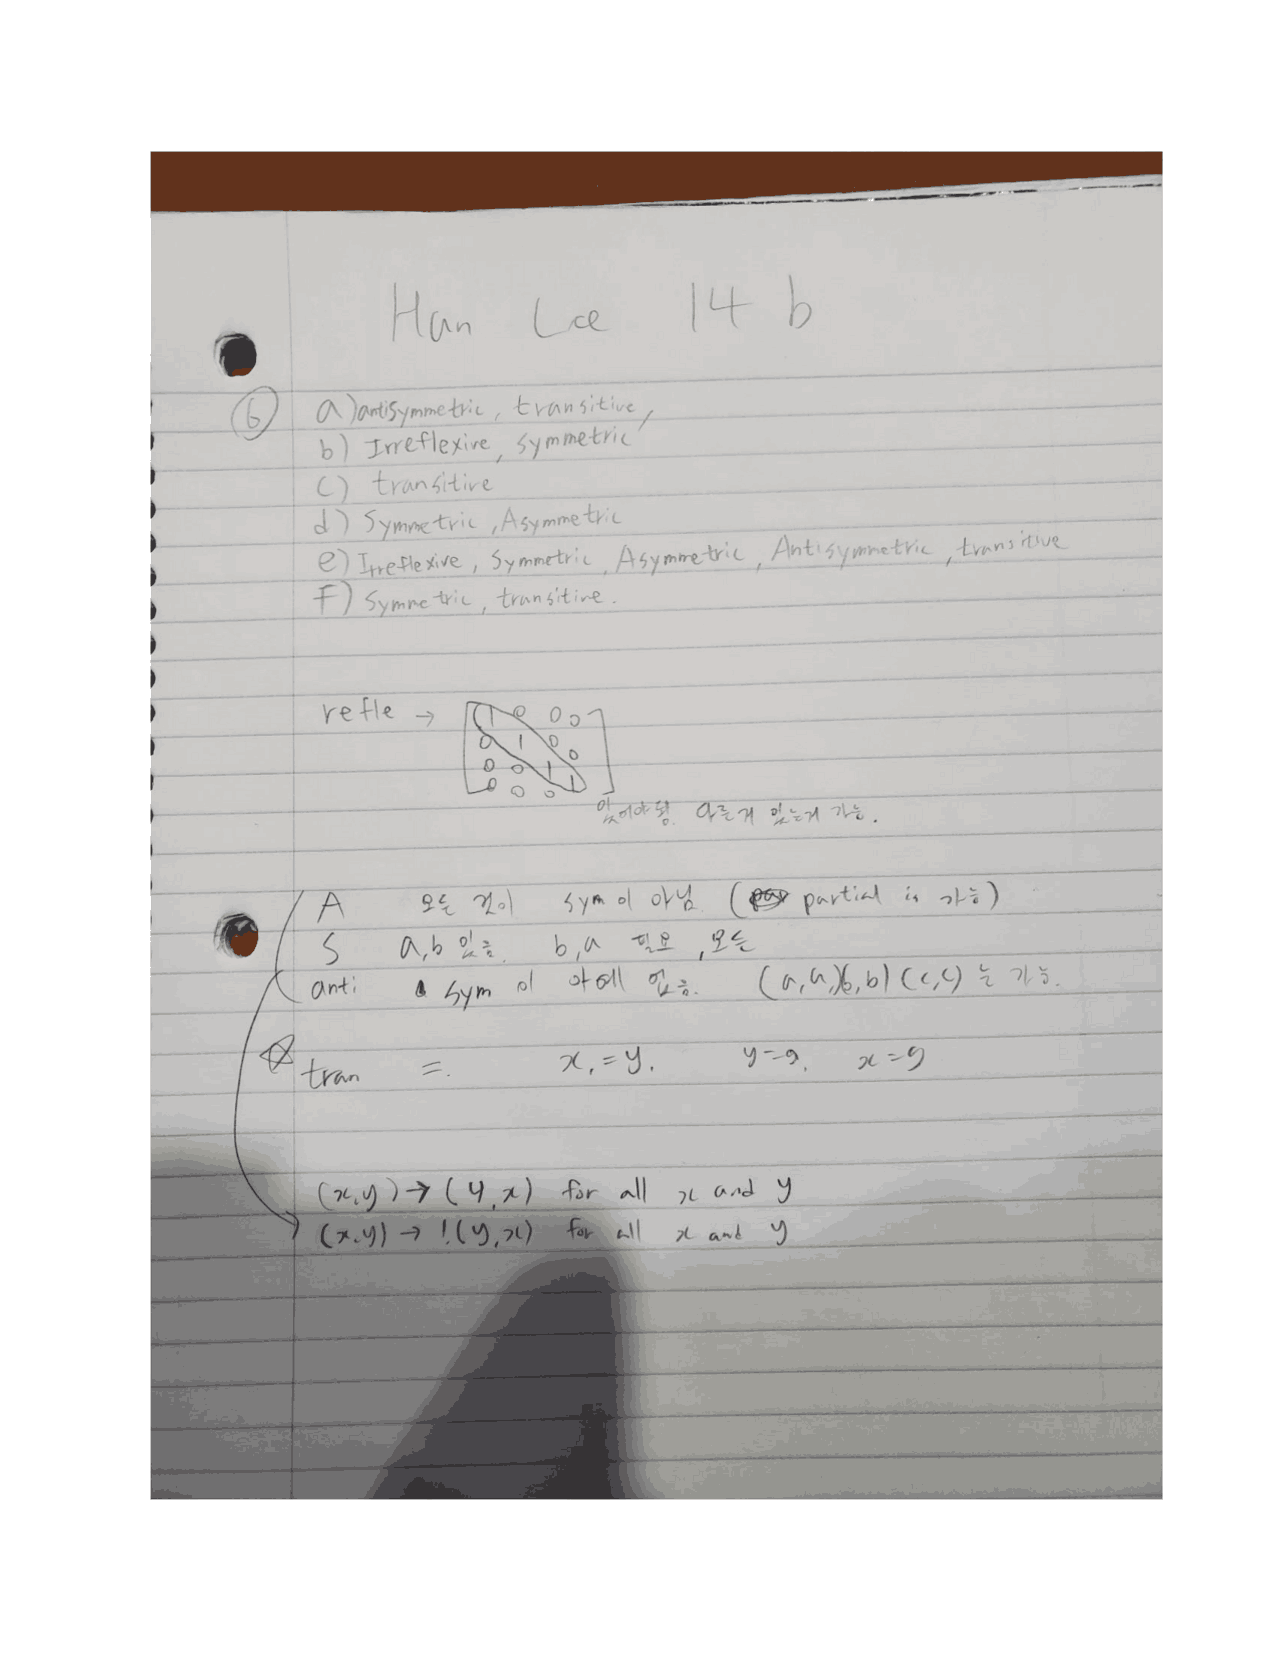 Han Lee 14 b
6 a) antisymmetric, transitive,
b) Irreflexive, symmetric
c) transitive
d) Symmetric, Asymmetric
e) Irreflexive, Symmetric, Asymmetric, Antisymmetric, transitive
F) Symmetric, transitive.
refle → 1 0 0 0
0 1 0 0
0 0 1
0 0 0 1
있어야됨. 다른게 있는게 가능.
A 모든 것이 sym이 아님 ( partial is 가능)
S a,b 있음. b,a 필요, 모든
anti sym 이 아예 없음. (a,a)(b,b) (c,c) 는 가능.
tran =. x,=y. y=9. x=9
(x,y) → (y,x) for all x and y
(x,y) → !(y,x) for all x and y